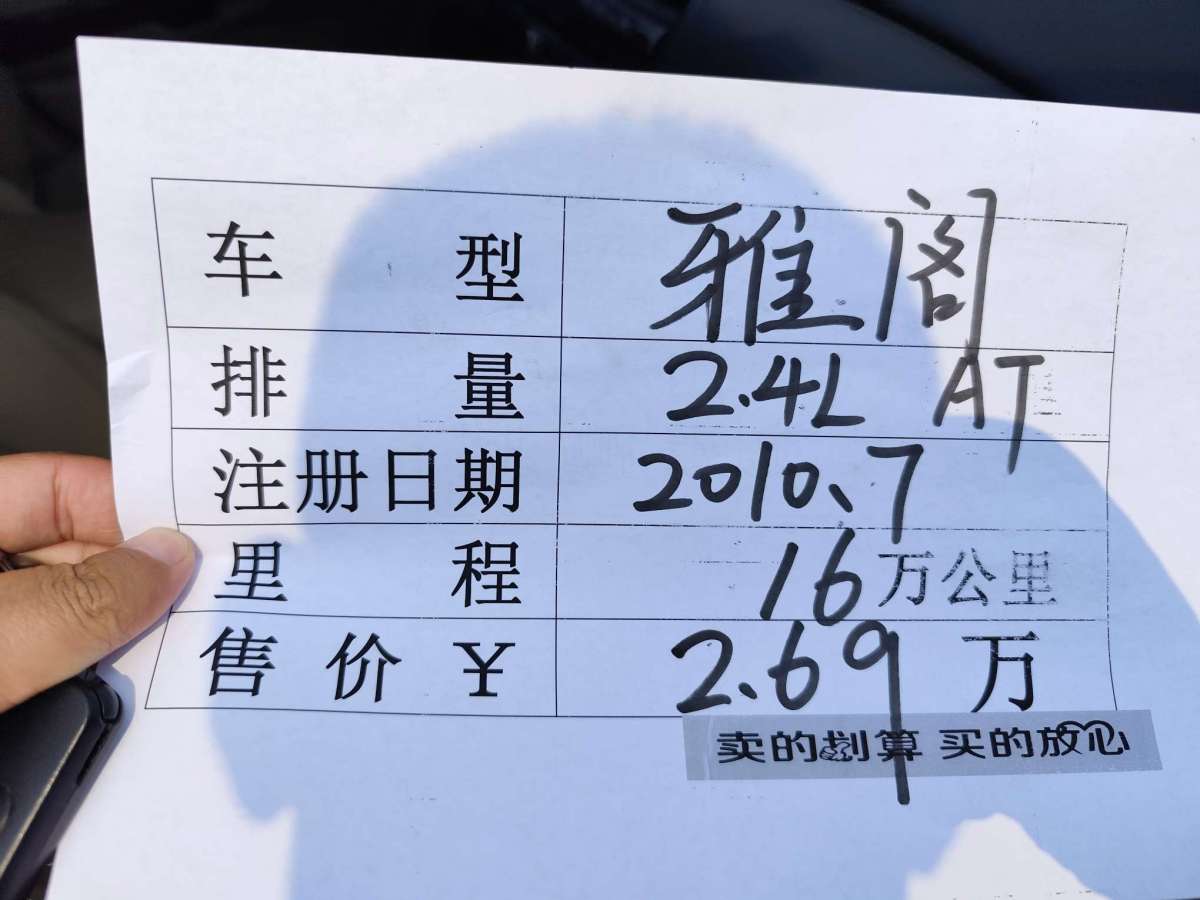 车型 雅阁
排量 2.4L AT
注册日期 2010、7
里程 16万公里
售价¥ 2.69万
卖的划算 买的放心